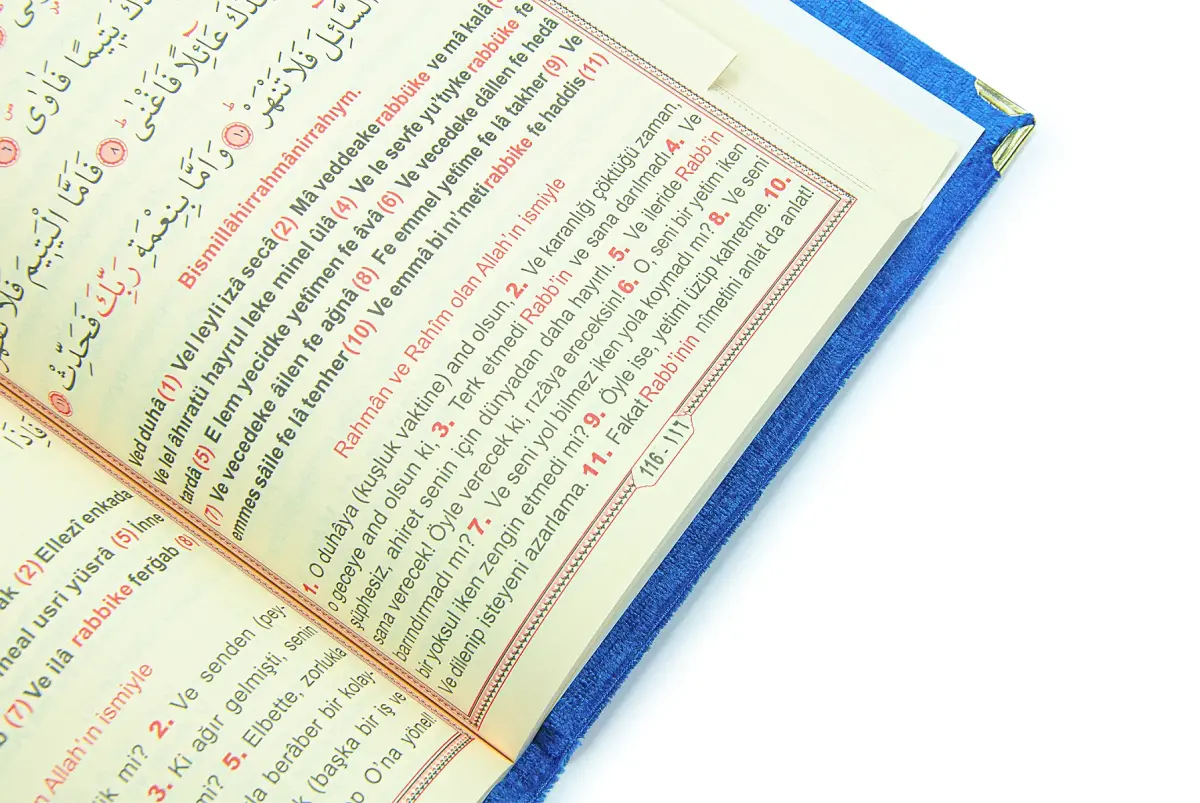 يَتِيمًا فَاٰوٰى ٦
عَائِلًا فَاَغْنٰى ٨ فَاَمَّا الْيَتِيمَ فَلَا
السَّائِلَ فَلَا تَنْهَرْ ١٠ وَاَمَّا بِنِعْمَةِ رَبِّكَ فَحَدِّثْ ١١
Bismillâhirrahmânirrahıym.
Ved duhâ (1) Vel leyli izâ secâ (2) Mâ veddeake rabbüke ve mâ kalâ
Ve lel âhıratü hayrul leke minel ûlâ (4) Ve le sevfe yu'tıyke rabbüke fe
tardâ (5) E lem yecidke yetîmen fe âvâ (6) Ve vecedeke dâllen fe hedâ
(7) Ve vecedeke âilen fe ağnâ (8) Fe emmel yetîme fe lâ takher (9) Ve
emmes sâile fe lâ tenher (10) Ve emmâ bi ni'meti rabbike fe haddis (11)
Rahmân ve Rahîm olan Allah'ın ismiyle
1. O duhâya (kuşluk vaktine) and olsun. 2. Ve karanlığı çöktüğü zaman,
o geceye and olsun ki, 3. Terk etmedi Rabb'in ve sana darılmadı. 4. Ve
şüphesiz, ahiret senin için dünyadan daha hayırlı. 5. Ve ileride Rabb'in
sana verecek! Öyle verecek ki, rızâya ereceksin! 6. O, seni bir yetim iken
barındırmadı mı? 7. Ve seni yol bilmez iken yola koymadı mı? 8. Ve seni
bir yoksul iken zengin etmedi mi? 9. Öyle ise, yetimi üzüp kahretme. 10.
Ve dilenip isteyeni azarlama. 11. Fakat Rabb'inin nîmetini anlat da anlat!
116 - ١١٦
فَاِذَا
(2) Ellezî enkada
usri yüsrâ (5) İnne
(7) Ve ilâ rabbike ferğab (8)
Allah'ın ismiyle
mi? 2. Ve senden (pey-
3. Ki ağır gelmişti, senin
mi? 5. Elbette, zorlukla
berâber bir kolay-
(başka bir iş ve
O'na yönel!